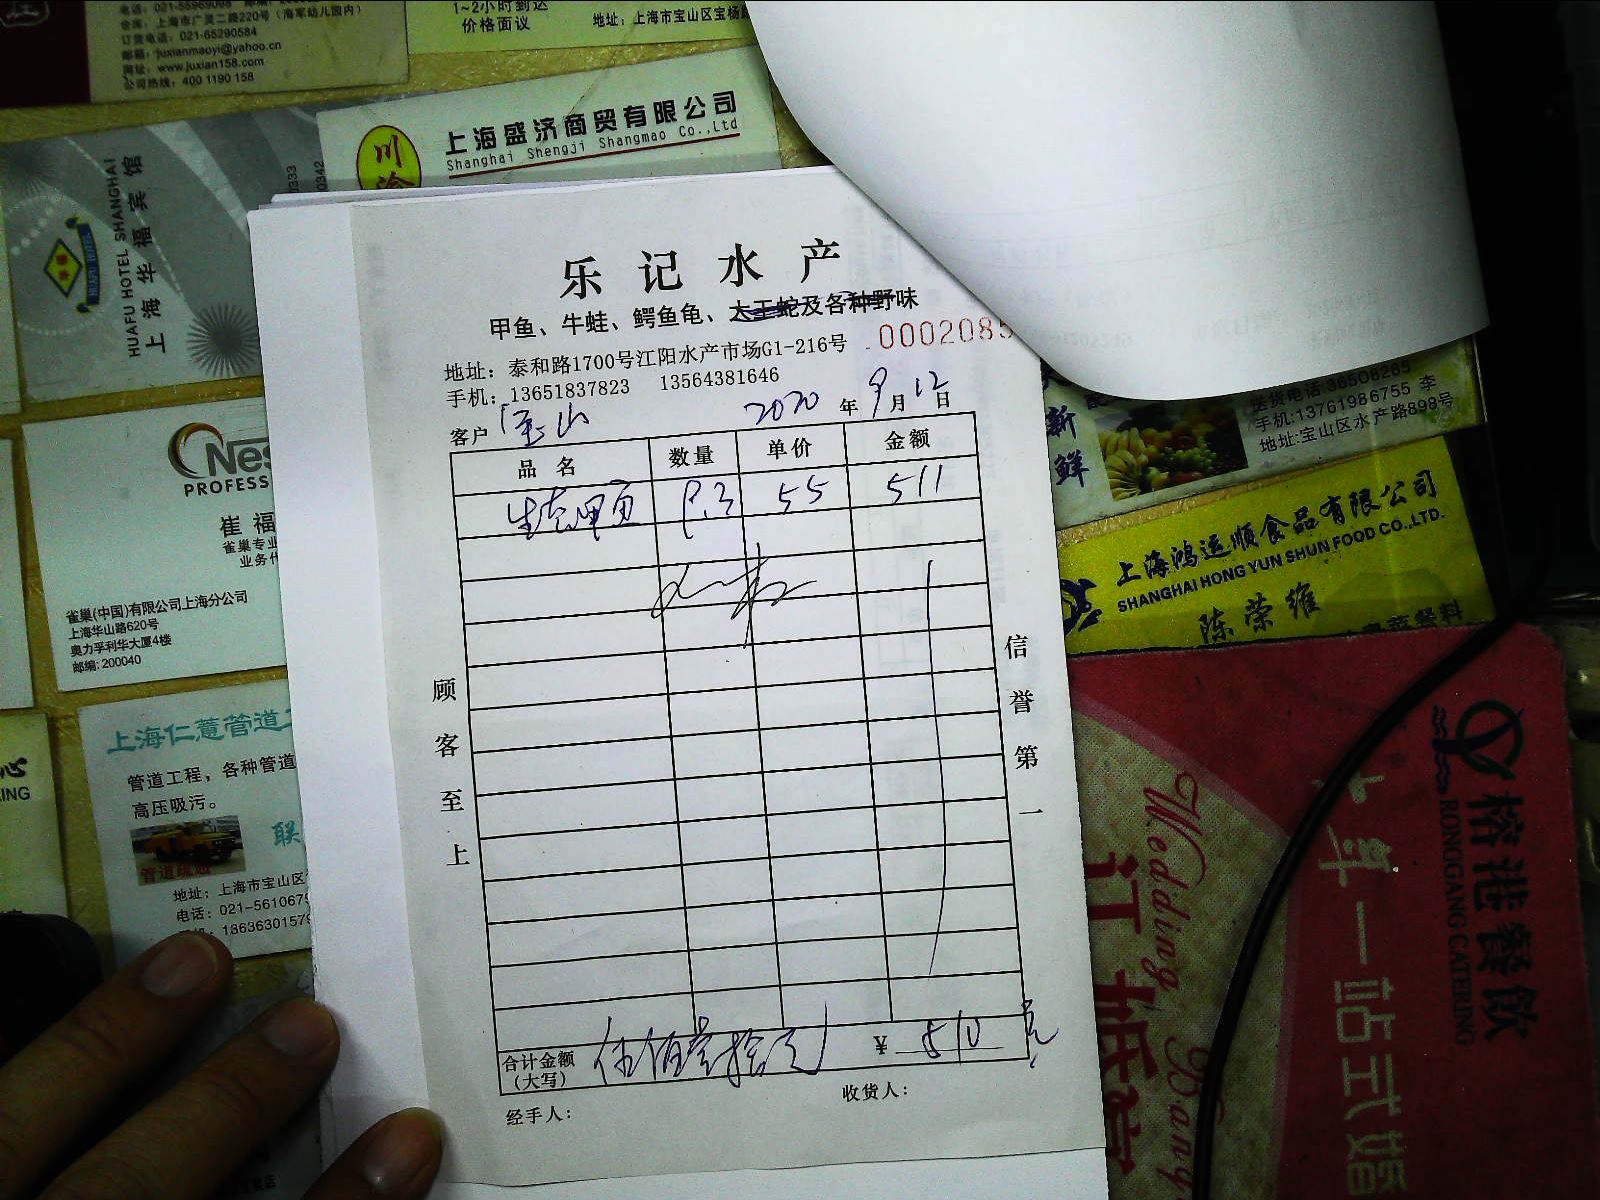 电话：021-55969098
仓库：上海市广灵二路220号（海军幼儿园内）
订货电话：021-65290584
邮箱：juxianmaoyi@yahoo.cn
网址：www.juxian158.com
公司热线：400 1190 158
1~2小时到达
价格面议
地址：上海市宝山区宝杨
HUAFU HOTEL SHANGHAI
上海华福宾馆
HUAFU HOTEL
0333
0342
川渝
上海盛济商贸有限公司
Shanghai Shengji Shangmao Co.,Ltd
乐记水产
甲鱼、牛蛙、鳄鱼龟、大王蛇及各种野味
地址：泰和路1700号江阳水产市场G1-216号
0002085
手机：13651837823 13564381646
客户 宝山 2020 年 9 月 12 日
品名 数量 单价 金额
生态甲鱼 9.3 55 511
顾客至上
信誉第一
合计金额（大写） 伍佰壹拾元 ¥ 510 元
经手人：
收货人：
Nes
PROFESS
崔福
雀巢专业
业务代
雀巢(中国)有限公司上海分公司
上海华山路620号
奥力孚利华大厦4楼
邮编: 200040
上海仁薏管道工
管道工程，各种管道
高压吸污。
联
管道疏通
地址：上海市宝山区
电话：021-561067
1363630157
心
ING
新鲜
送货电话:36508285
手机:13761986755 李
地址:宝山区水产路898号
上海鸿运顺食品有限公司
SHANGHAI HONG YUN SHUN FOOD CO.,LTD.
陈荣维
榕港餐飲
RONGGANG CATERING
一站式婚
Wedding Bang